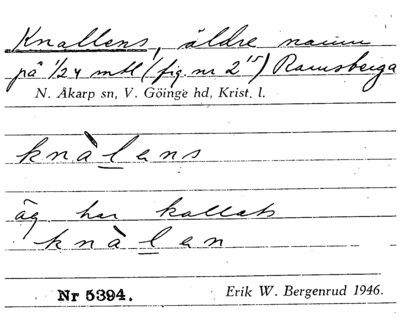 Knallens, äldre namn
på 1/24 mtl (fig. nr 2¹⁵) Ramsberga
N. Åkarp sn, V. Göinge hd, Krist. l.
knàlens
äg. har kallats
knàlen
Nr 5394.
Erik W. Bergenrud 1946.